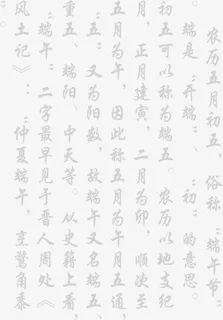 农历五月初五，俗称“端午节”，
端是“开端”、“初”的意思。
初五可以称为端五。农历以地支纪
月，正月建寅，二月为卯，顺次至
五月为午，因此称五月为午 五通
，五又为阳数，故端午又名端五、
重五、端阳、中天等。从史籍上看，
“端午”二字最早见于晋人周处《
风土记》：“仲夏端午，烹鹜角黍